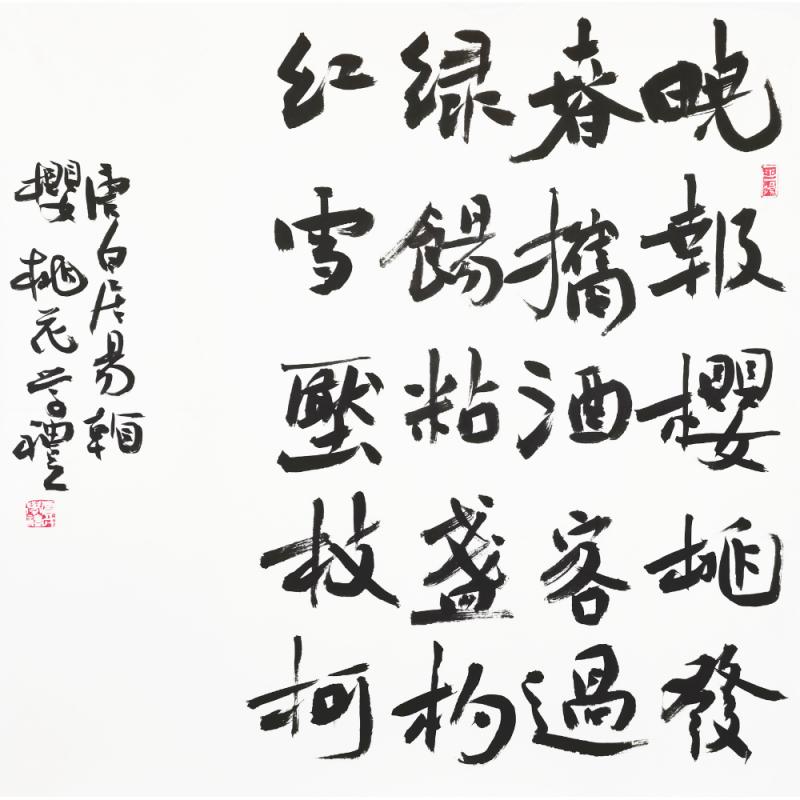 曉報櫻桃發
春攜酒客過
綠餳粘盞杓
紅雪壓枝柯
唐白居易
櫻桃花学禮